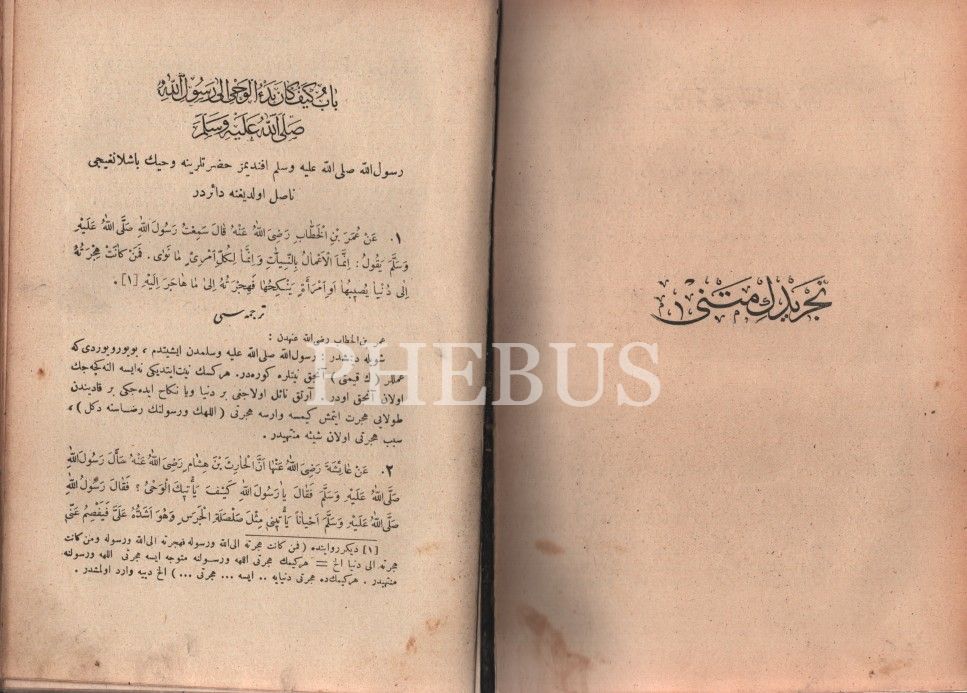 تجريدك متنى
١
باب كيف كان بدء الوحى الى رسول الله
صلى الله عليه وسلم
رسول الله صلى الله عليه وسلم افنديمز حضرتلرينه وحيك باشلانغيجى
ناصل اولديغنه دائردر
١. عَنْ عُمَرَ بْنِ الْخَطَّابِ رَضِىَ اللهُ عَنْهُ قَالَ سَمِعْتُ رَسُولَ اللهِ صَلَّى اللهُ عَلَيْهِ
وَسَلَّمَ يَقُولُ : اِنَّمَا الْاَعْمَالُ بِالنِّيَّاتِ وَاِنَّمَا لِكُلِّ امْرِئٍ مَا نَوٰى . فَمَنْ كَانَتْ هِجْرَتُهُ
اِلٰى دُنْيَا يُصِيبُهَا اَوِ امْرَأَةٍ يَنْكِحُهَا فَهِجْرَتُهُ اِلٰى مَا هَاجَرَ اِلَيْهِ [١].
ترجمه سى
عمر بن الخطاب رضى الله عنهدن :
شويله ديمشدر : رسول الله صلى الله عليه وسلمدن ايشيتدم ، بويوروردى كه
عمللر (ك قيمتى) آنجق نيتلره كوره در. هركسك نيت ايتديكى نه ايسه النه كچه جك
اولان آنجق اودر. آرتق نائل اولاجغى بر دنيا ويا نكاح ايده جكى بر قاديندن
طولايى هجرت ايتمش كيمسه وارسه هجرتى ( اللهك ورسولنك رضاسنه دكل ) ،
سبب هجرتى اولان شيئه منتهيدر .
٢. عَنْ عَائِشَةَ رَضِىَ اللهُ عَنْهَا اَنَّ الْحَارِثَ بْنَ هِشَامٍ رَضِىَ اللهُ عَنْهُ سَأَلَ رَسُولَ اللهِ
صَلَّى اللهُ عَلَيْهِ وَسَلَّمَ فَقَالَ يَا رَسُولَ اللهِ كَيْفَ يَأْتِيكَ الْوَحْىُ ؟ فَقَالَ رَسُولُ اللهِ
صَلَّى اللهُ عَلَيْهِ وَسَلَّمَ اَحْيَاناً يَأْتِينِى مِثْلَ صَلْصَلَةِ الْجَرَسِ وَهُوَ اَشَدُّهُ عَلَىَّ فَيَفْصِمُ عَنِّى
[١] ديكر روايتده ( فمن كانت هجرته الى الله ورسوله فهجرته الى الله ورسوله ومن كانت
هجرته الى دنيا الخ = هركيمك هجرتى اللهه ورسولنه متوجه ايسه هجرتى اللهه ورسولنه
منتهيدر . هركيمك ده هجرتى دنيايه .. ايسه ... هجرتى ... ) الخ دييه وارد اولمشدر .
PHEBUS